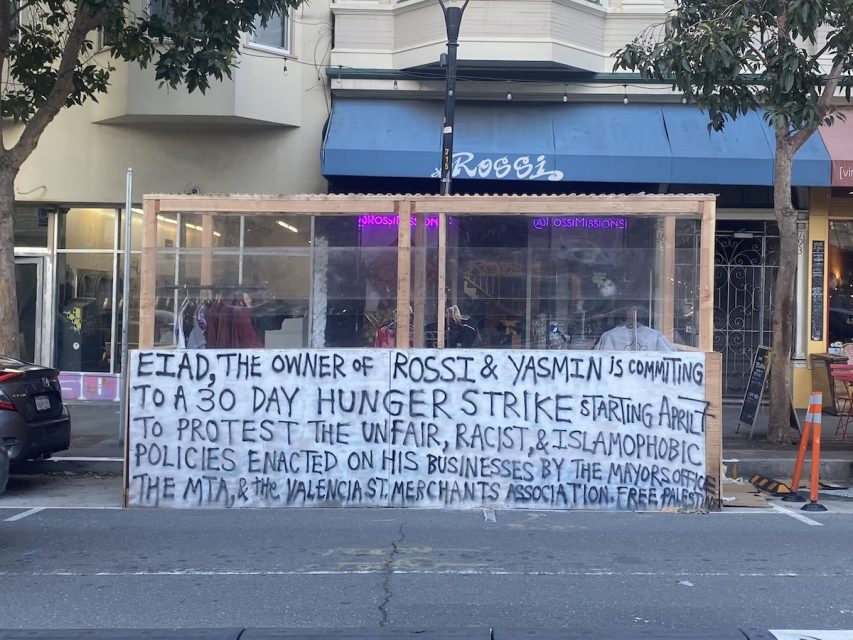 Rossi
@ROSSIMISSIONSF
@ROSSIMISSIONSF
EIAD, THE OWNER OF ROSSI & YASMIN IS COMMITING
TO A 30 DAY HUNGER STRIKE STARTING APRIL 7
TO PROTEST THE UNFAIR, RACIST, & ISLAMOPHOBIC
POLICIES ENACTED ON HIS BUSINESSES BY THE MAYORS OFFICE
THE MTA, & the VALENCIA ST. MERCHANTS ASSOCIATION. FREE PALESTINE